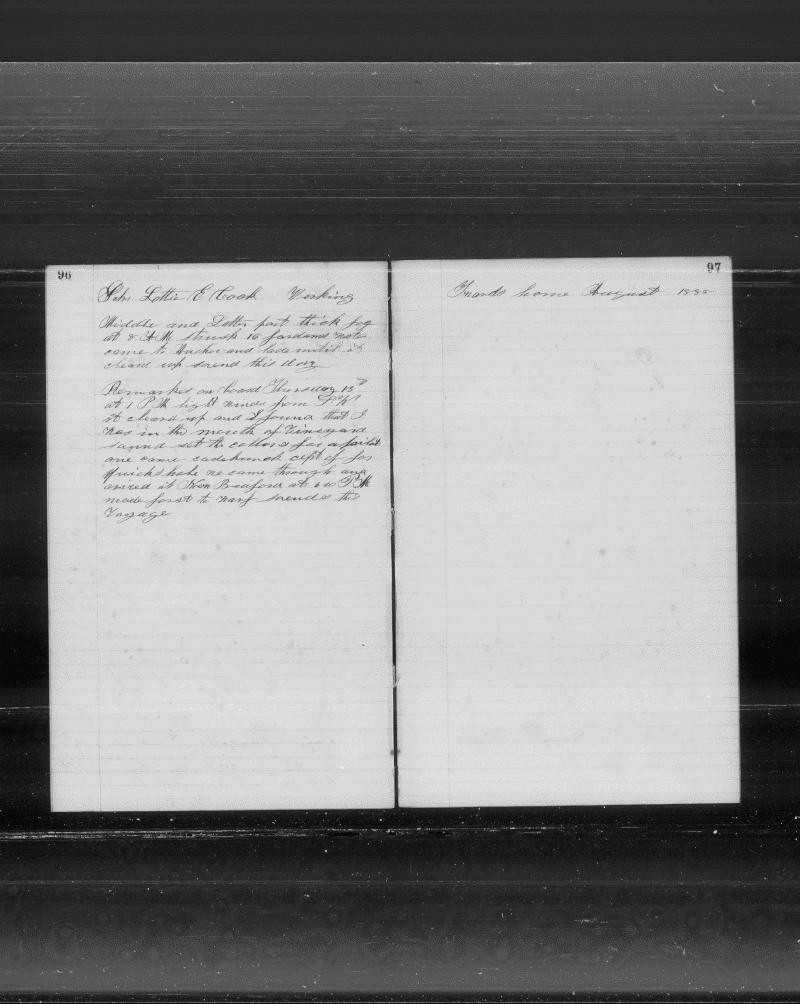 96
Schr. Lottie E Cook Working
Middle and Latter part thick fog
at 8 A M struck 16 fardoms water
came to Anchor and laid until it
cleard up so end this day
Remarks on board Thursday 13th
at 1 P M light winds from
it cleard up and I found that I
was in the mouth of Vineyard
sound set the collors for a pilot
one came cept of for
Quicks hole we came through and
arived at New Bedford at P M
made farst to warf so ends this
Voyage
97
Towards home August 1885